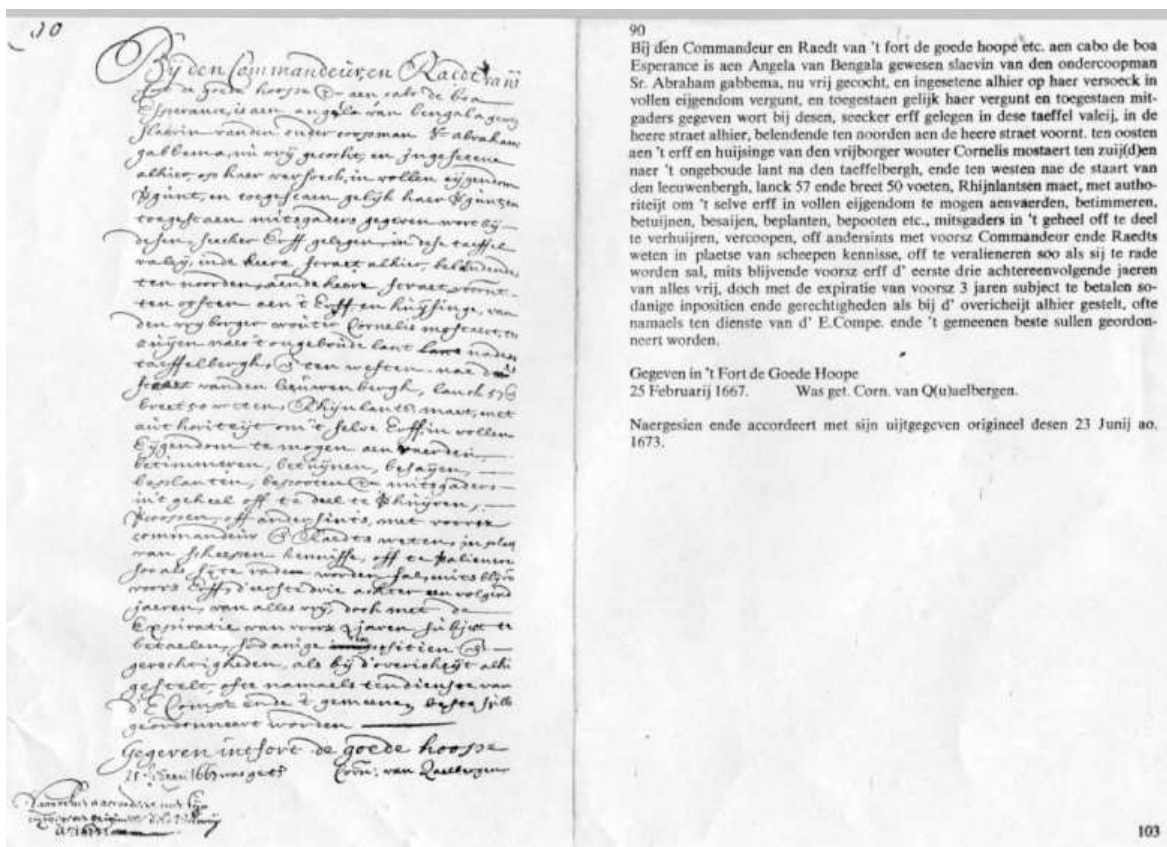 Bij den Commandeur, en Raedt van
de goede hoope & aen cabo de boa
Esperance, is aen angela van bengala gew
slaevin vanden onder coopman Sr abraham
gabbema, nu vrij gecocht, en Ingesetene
alhier, op haer versoeck, in vollen eijgendom
vergunt, en toegestaen gelijk haer vergunt en
toegestaen mitsgaders gegeven wort bij
desen, seecker Erff gelegen, in dese taeffel
valeij, inde heere straet alhier, belendende
ten noorden, aen de heere straet voornt
ten oosten aen 't Erff, en huijsinge, van
den vrij borger wouter Cornelis mostaert, en
zuijen naer 't ongeboude lant na den
taeffelbergh, & ten westen nae de
staert vanden leeuwen bergh, lanck 57 &
breet 50 voeten, Rhijnlants maet, met
authoriteijt om 't selve Erff, in vollen
Eijgendom te mogen aenvaerden
betimmeren, betuijnen, besaijen,
beplanten, bepooten & mitsgaders
in 't geheel off te deel te verhuijren,
vercoopen, off andersints, met voorsz
commandeur & Raedts weten, in plae
van scheepen kennisse, off te veraliene
soo als sij te rade worden sal, mits blijv
voors Erff, d' eerste drie achter een volgend
jaeren, van alles vrij, doch met de
Expiratie van voorsz 3 jaren subject te
betaelen, sodanige inpositien &
gerechtigheden, als bij d'overicheijt alhi
gestelt, ofte namaels ten dienste van
d'E Compe ende 't gemeenen beste sulle
geordonneert worden
Gegeven int fort de goede hoope
1667 was get Corn: van Qaelbergen
90
Bij den Commandeur en Raedt van 't fort de goede hoope etc. aen cabo de boa
Esperance is aen Angela van Bengala gewesen slaevin van den ondercoopman
Sr. Abraham gabbema, nu vrij gecocht, en ingesetene alhier op haer versoeck in
vollen eijgendom vergunt, en toegestaen gelijk haer vergunt en toegestaen mit-
gaders gegeven wort bij desen, seecker erff gelegen in dese taeffel valeij, in de
heere straet alhier, belendende ten noorden aen de heere straet voornt. ten oosten
aen 't erff en huijsinge van den vrijborger wouter Cornelis mostaert ten zuij(d)en
naer 't ongeboude lant na den taeffelbergh, ende ten westen nae de staart van
den leeuwenbergh, lanck 57 ende breet 50 voeten, Rhijnlantsen maet, met autho-
riteijt om 't selve erff in vollen eijgendom te mogen aenvaerden, betimmeren,
betuijnen, besaijen, beplanten, bepooten etc., mitsgaders in 't geheel off te deel
te verhuijren, vercoopen, off andersints met voorsz Commandeur ende Raedts
weten in plaetse van scheepen kennisse, off te veralieneren soo als sij te rade
worden sal, mits blijvende voorsz erff d' eerste drie achtereenvolgende jaeren
van alles vrij, doch met de expiratie van voorsz 3 jaren subject te betalen so-
danige inpositien ende gerechtigheden als bij d' overicheijt alhier gestelt, ofte
namaels ten dienste van d' E.Compe. ende 't gemeenen beste sullen geordon-
neert worden.
Gegeven in 't Fort de Goede Hoope
25 Februarij 1667. Was get. Corn. van Q(u)aelbergen.
Naergesien ende accordeert met sijn uijtgegeven origineel desen 23 Junij ao.
1673.
103